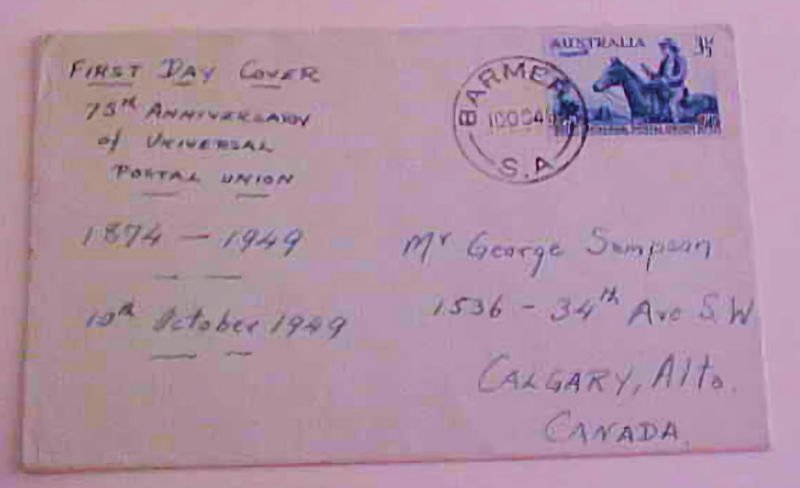 FIRST DAY COVER
75th ANNIVERSARY
of UNIVERSAL
POSTAL UNION
1874 - 1949
10th October 1949
AUSTRALIA 3½
BARMERA
10 OC 49
S.A
Mr George Sampson
1536 - 34th Ave S.W.
CALGARY, Alta.
CANADA